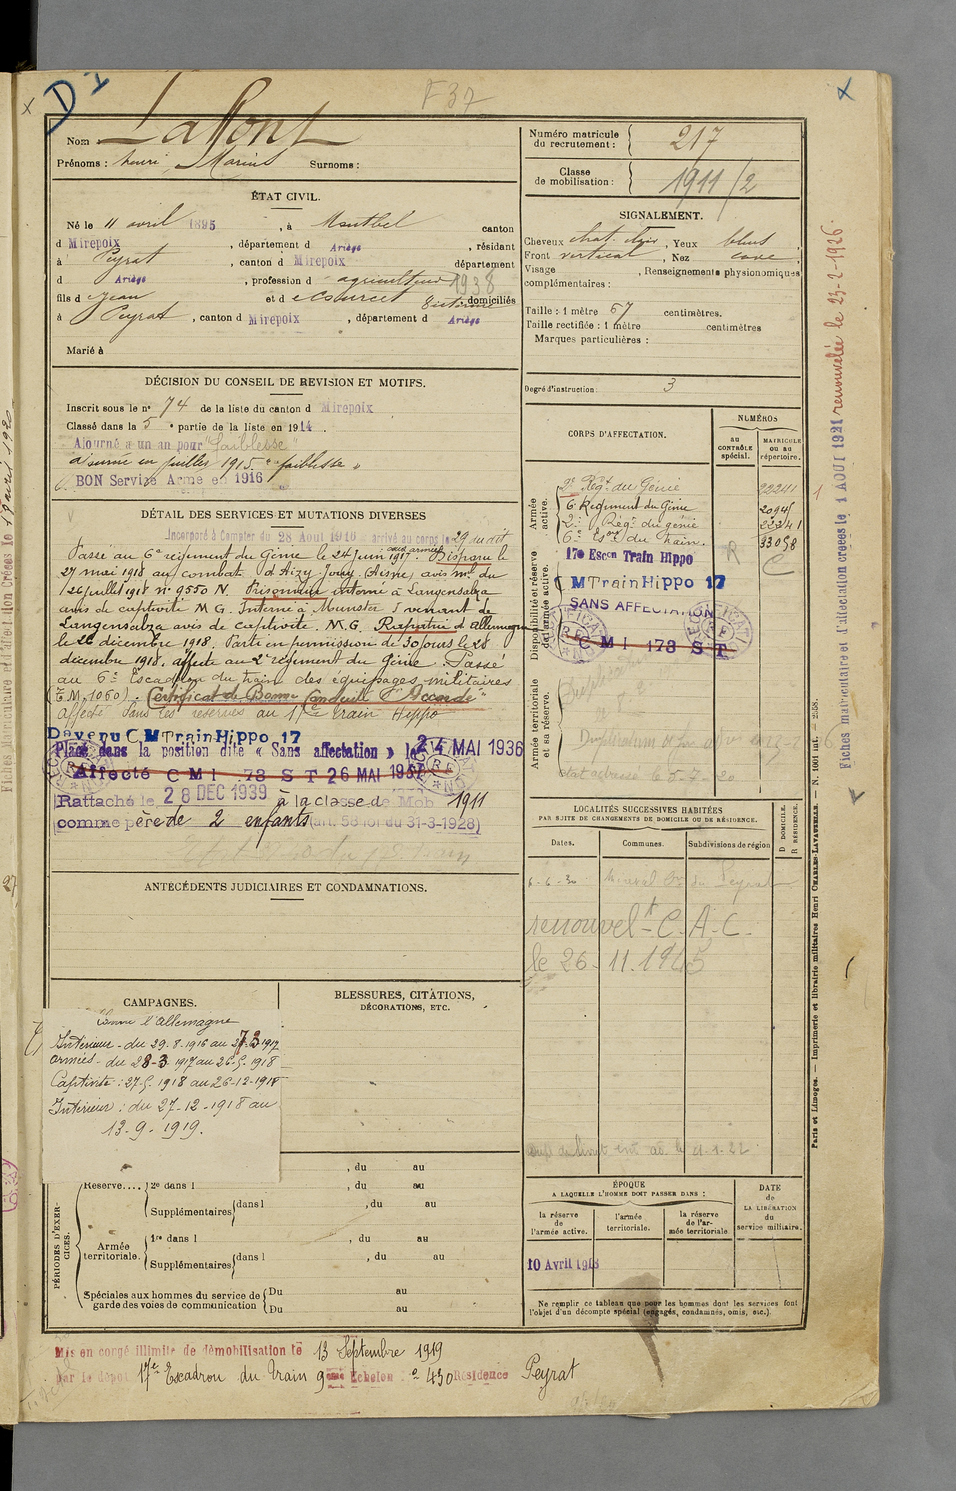 D 1
F 37
Nom Laffont
Prénoms : henri, Marius Surnoms :
Numéro matricule du recrutement : 217
Classe de mobilisation : 1911/2
ÉTAT CIVIL.
Né le 11 avril 1895, à Montbel canton
d Mirepoix, département d Ariège, résidant
à Peyrat, canton d Mirepoix département
d Ariège, profession d agriculteur 1938
fils d Jean et d domiciliés
à Peyrat, canton d Mirepoix, département d Ariège
Marié à
SIGNALEMENT.
Cheveux chat. clair, Yeux bleus
Front vertical, Nez cave
Visage , Renseignements physionomiques
complémentaires :
Taille : 1 mètre 67 centimètres.
Taille rectifiée : 1 mètre centimètres
Marques particulières :
Degré d'instruction : 3
DÉCISION DU CONSEIL DE REVISION ET MOTIFS.
Inscrit sous le nº 74 de la liste du canton d Mirepoix
Classé dans la 5e partie de la liste en 1914.
Ajourné à un an pour "faiblesse"
Ajourné en juillet 1915 "faiblesse"
BON Service Armé en 1916
DÉTAIL DES SERVICES ET MUTATIONS DIVERSES
Incorporé à compter du 28 Aout 1916 arrivé au corps le 29 du dit
Passé au 6e régiment du Génie le 24 juin 1917. aux armées Disparu le
27 mai 1918 au combat d'Aizy-Jouy (Aisne) avis mel du
26 juillet 1918 nº 9550 N. Prisonnier interné à Langensalza
avis de captivité M G. Interné à Munster venant de
Langensalza avis de captivité. M.G. Rapatrié d'Allemagne
le 26 décembre 1918. Parti en permission de 30 jours le 28
décembre 1918. affecté au 2e régiment du Génie. Passé
au 6e Escadron du train des équipages militaires
(E.M. 1060). Certificat de Bonne Conduite "Accordé"
affecté dans les réserves au 17e train Hippo
Devenu C M Train Hippo 17
Placé dans la position dite « Sans affectation » le 24 MAI 1936
Affecté C M I. 73 S T 26 MAI 1937
Rattaché le 28 DEC 1939 à la classe de Mob 1911
comme père de 2 enfants (art. 58 loi du 31-3-1928)
CORPS D'AFFECTATION.
NUMÉROS
au CONTRÔLE spécial.
MATRICULE ou au répertoire.
Armée active.
2e Régt du Génie 22241
6e Régiment du Génie
2e Régt du génie 22241
6e Eson du Train. 33058
Disponibilité et réserve de l'armée active.
17e Escon Train Hippo R
C M Train Hippo 17 C
SANS AFFECTATION
C M I 173 S T
Armée territoriale et sa réserve.
ANTÉCÉDENTS JUDICIAIRES ET CONDAMNATIONS.
LOCALITÉS SUCCESSIVES HABITÉES
PAR SUITE DE CHANGEMENTS DE DOMICILE OU DE RÉSIDENCE.
Dates.
Communes.
Subdivisions de région
D DOMICILE.
R RÉSIDENCE.
renouvelt C. A. C.
le 26. 11. 1945
CAMPAGNES.
Contre l'Allemagne
Intérieur - du 29-8-1916 au 27-3-1917
armées - du 28-3-1917 au 26-5-1918
Captivité : 27-5-1918 au 26-12-1918
Intérieur : du 27-12-1918 au
13-9-1919.
BLESSURES, CITATIONS,
DÉCORATIONS, ETC.
PÉRIODES D'EXERCICES.
, du au
Réserve.... 2e dans l , du au
Supplémentaires dans l , du au
Armée territoriale. 1re dans l , du au
Supplémentaires dans l , du au
Spéciales aux hommes du service de garde des voies de communication Du au
Du au
ÉPOQUE
A LAQUELLE L'HOMME DOIT PASSER DANS :
la réserve de l'armée active.
l'armée territoriale.
la réserve de l'armée territoriale
DATE de LA LIBÉRATION du service militaire.
10 Avril 1918
Ne remplir ce tableau que pour les hommes dont les services font
l'objet d'un décompte spécial (engagés, condamnés, omis, etc.).
Mis en congé illimité de démobilisation le 13 Septembre 1919
par le dépôt 17e Escadron du Train 9eme Echelon nº 430 Résidence Peyrat
Fiches matriculaire et d'affectation créées le 1 AOUT 1921 renouvelée le 23-2-1926
Paris et Limoges. — Imprimerie et librairie militaires Henri CHARLES-LAVAUZELLE. — N. 1001 int. — 2558.